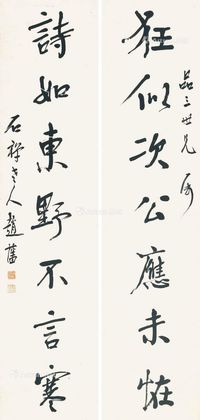 狂似次公應未怪
品三世兄屬
詩如東野不言寒
石禪老人趙藩